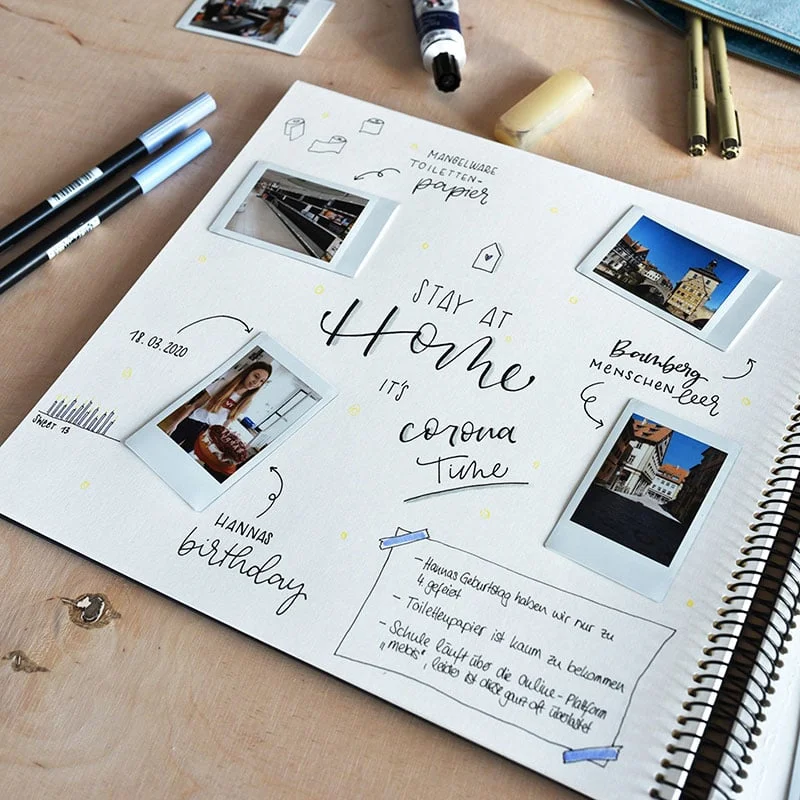 MANGELWARE
TOILETTEN-
papier
STAY AT
Home
IT'S
corona
Time
18.03.2020
SWEET 13
HANNAS
birthday
Bamberg
MENSCHENleer
- Hannas Geburtstag haben wir nur zu
4. gefeiert
- Toilettenpapier ist kaum zu bekommen
- Schule läuft über die Online-Plattform
„mebis", leider ist diese ganz oft überlastet